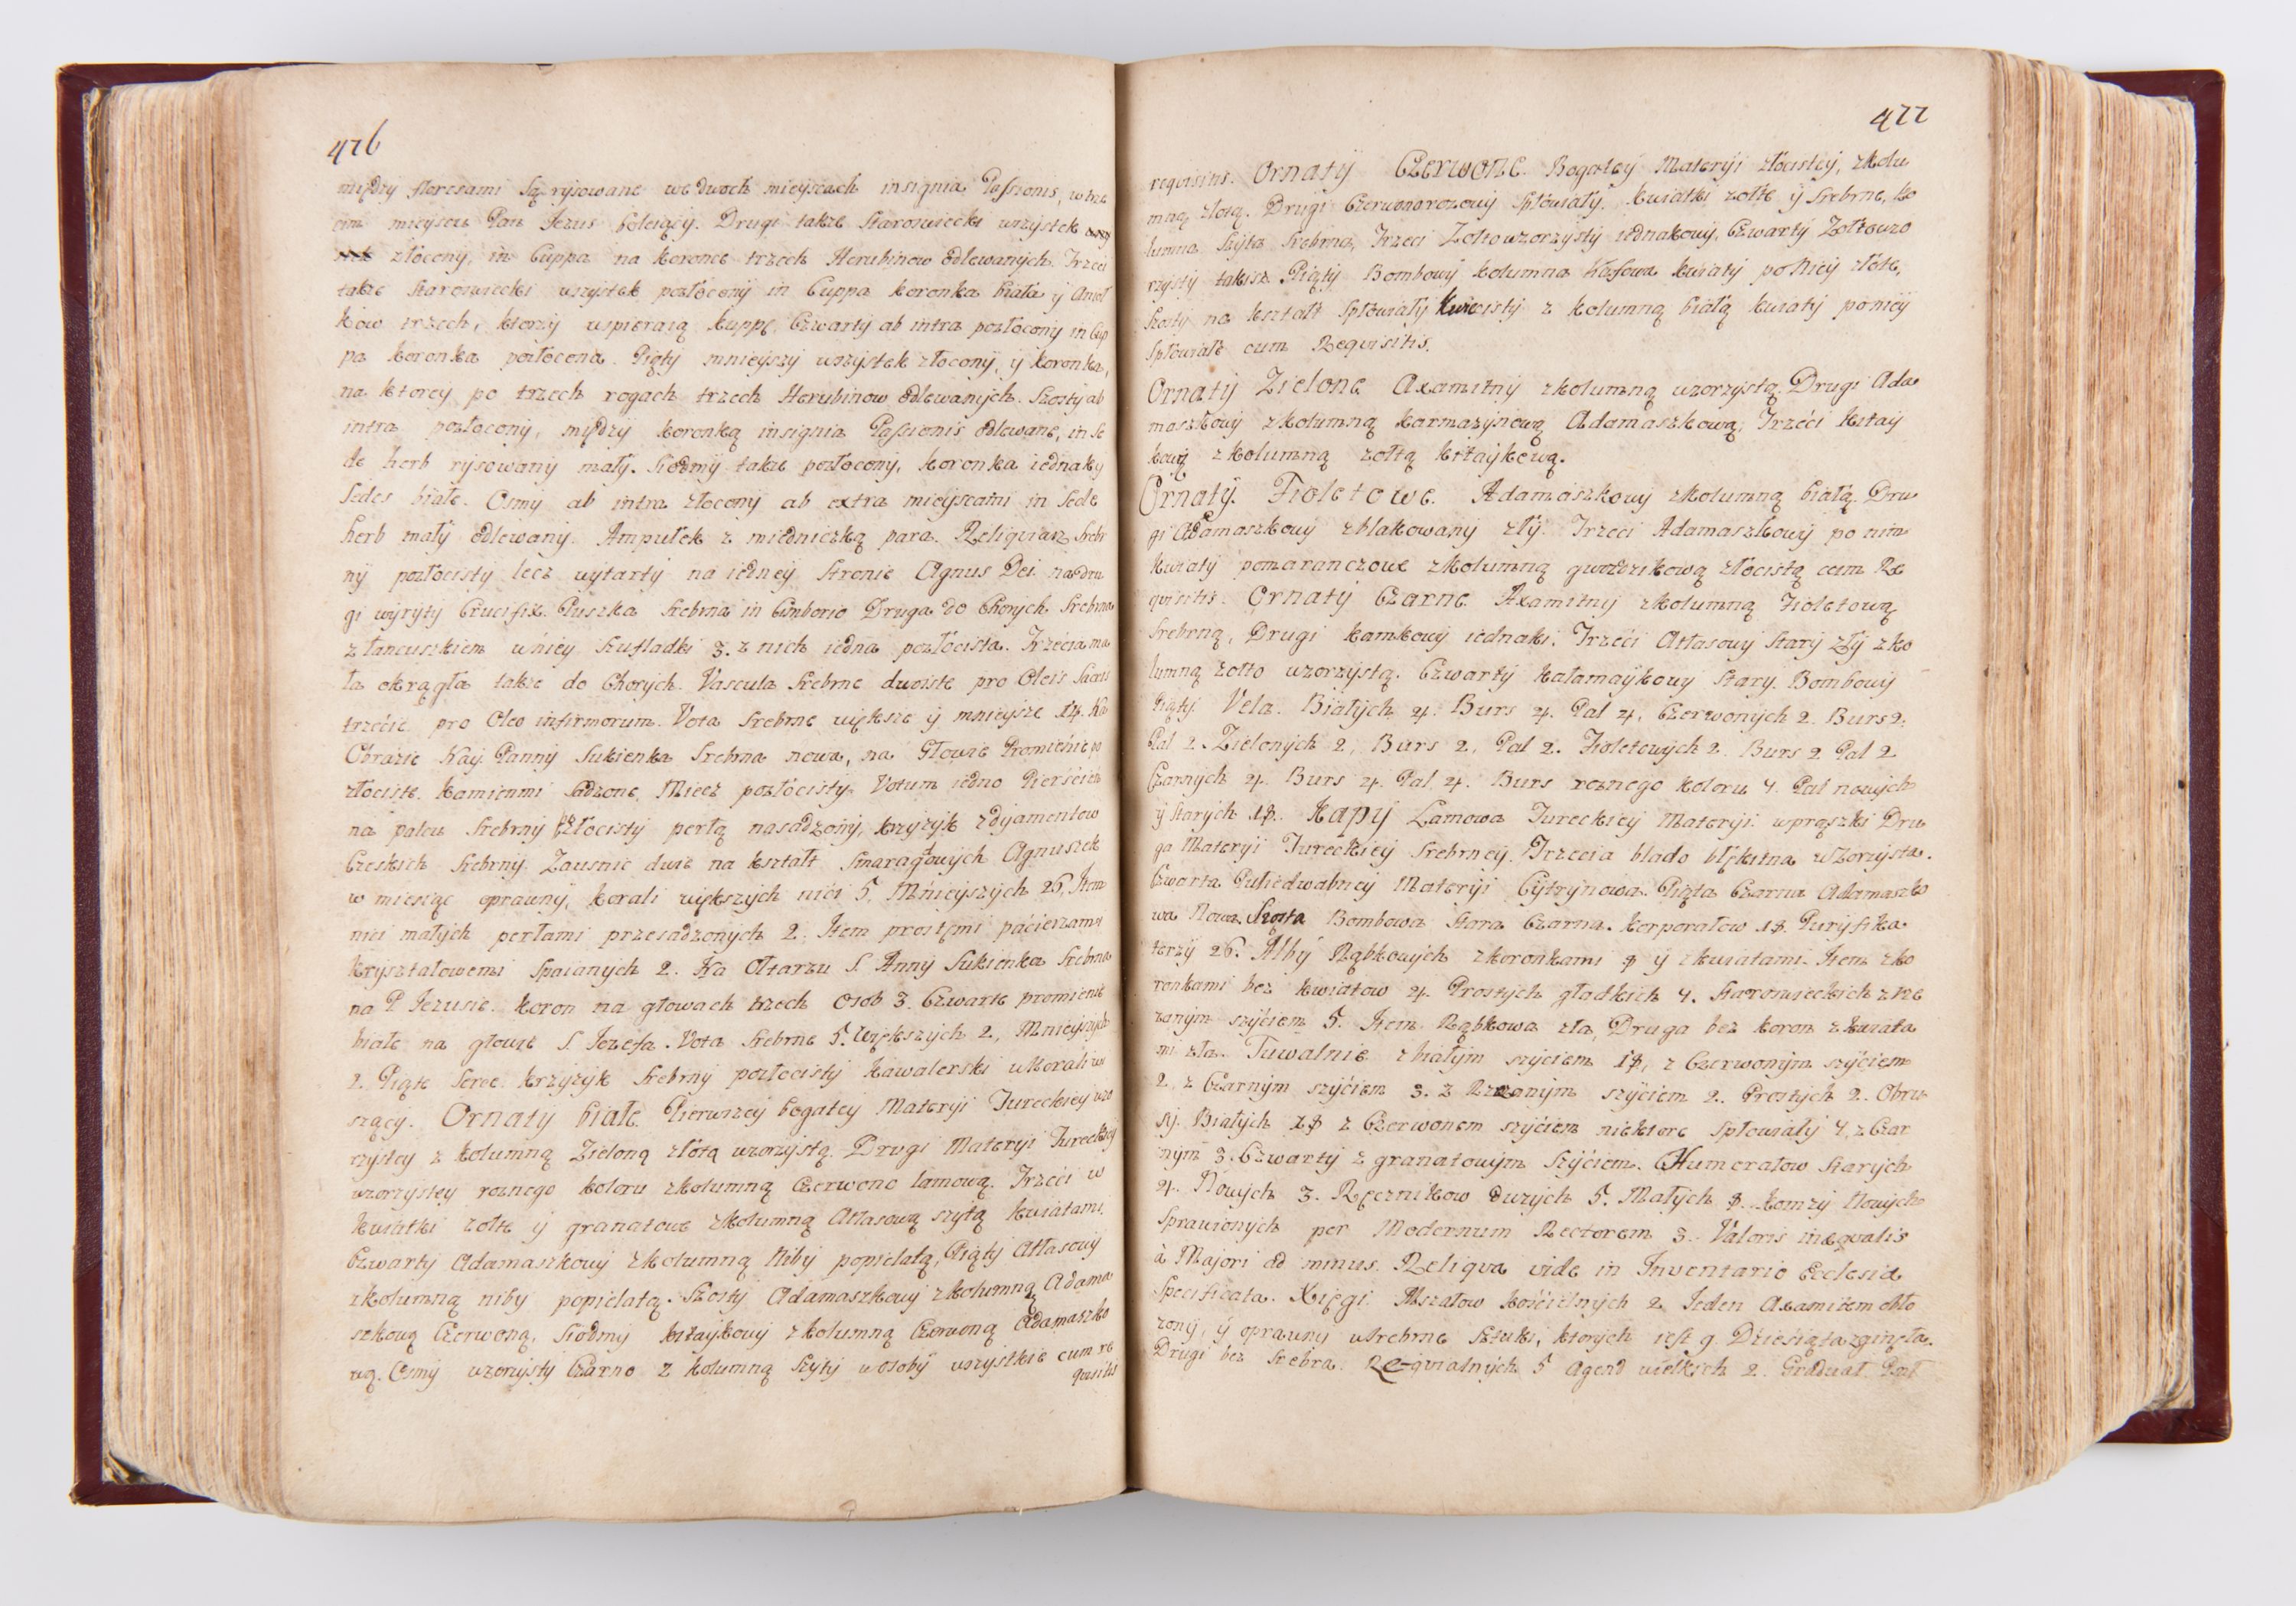 476
między floresami Są rysowane we dwoch mieyscach insignia Passionis, w trze
cim mieyscu Pan Jezus boleiący. Drugi także Staroswiecki wszystek
złocony, in Cuppa na koronce trzech Herubinow odlewanych. Trzeci
także Staroswiecki wszystek pozłocony in Cuppa koronka biała y Anioł
kow trzech, ktorzy wspieraią kuppę. Czwarty ab intra pozłocony in Cup
pa koronka pozłocona. Piąty mnieyszy wszystek złocony, y koronka,
na ktorey po trzech rogach trzech Herubinow odlewanych. Szosty ab
intra pozłocony, między koronką insignia Passionis odlewane, in Se
de herb rysowany mały. Siodmy także pozłocony, koronka iednaky
Sedes białe. Osmy ab intra złocony ab extra mieyscami in Sede
herb mały odlewany. Ampułek z miedniczką para. Reliqviarz Srebr
ny pozłocisty lecz wytarty na iedney Stronie Agnus Dei na dru
gi wyryty Crucifix. Puszka Srebrna in Cimborio Druga do Chorych Srebrna
z łancuszkiem w niey Szufladki 3. z nich iedna pozłocista. Trzecia ma
ła okrągła także do Chorych. Vascula Srebrne dwoiste pro Oleis Sacris
trzecie pro Oleo infirmorum. Vota Srebrne większe y mnieysze 14. Na
Obrazie Nay. Panny Sukienka Srebrna nowa, na Głowie Promienie po
złociste. kamienmi sadzone, Miecz pozłocisty. Votum iedno Pierścień
na palcu Srebrny złocisty perłą nasadzony, krzyżyk z dyamentow
Czeskich Srebrny. Zausnic dwie na kształt Smaragdowych Agnuszek
w miesiąc oprawny, korali większych nici 5. Mnieyszych 26, Item
nici małych perłami przesadzonych 2. Item prostemi pacierzami
krzyształowemi Spaianych 2. Na Ołtarzu S. Anny Sukienka Srebrna
na P Jezusie. koron na głowach trzech Osob 3. Czwarte promienie
białe na głowie S. Jozefa. Vota Srebrne 5. większych 2, Mnieyszych
2. Piąte Serce. krzyżyk Srebrny pozłocisty kawalerski u korali wi
szący. Ornaty białe. Pierwszey bogatey Materyi Tureckiey wzo
rzystey z kolumną Zieloną złotą wzorzystą. Drugi Materyi Tureckiey
wzorzystey roznego koloru z kolumną Czerwono lamową. Trzeci w
kwiatki zołte y granatowe z kolumną Atłasową szytą kwiatami.
Czwarty Adamaszkowy z kolumną Niby popielatą, Piąty Atłasowy
z kolumną niby popielatą. Szosty Adamaszkowy z kolumną Adama
szkową Czerwoną, Siodmy kitaykowy z kolumną Czerwoną Adamaszko
wą. Osmy wzorzysty Czarno z kolumną Szyty w osoby wszystkie cum re
quisitis
477
requisitis. Ornaty Czerwone. Bogatey Materyi złocistey, z kolu
mną złotą. Drugi Czerwonorozowy Spłowiały, kwiatki zołte y Srebrne, ko
lumna Szyta Srebrna, Trzeci Zołtowzorzysty iednakowy, Czwarty Zołtowzo
rzysty takisz. Piąty Bombowy kolumna kwiaty po Niey złote,
Szosty na kształt Spłowiały kwiecisty z kolumną białą kwiaty po niey
Spłowiałe cum Requisitis.
Ornaty Zielone Axamitny z kolumną wzorzystą. Drugi Ada
maszkowy z kolumną karmazynową Adamaszkową, Trzeci kitay
kowy z kolumną zołtą kitaykową.
Ornaty. Fioletowe. Adamaszkowy z kolumną białą. Dru
gi Adamaszkowy zblakowany zły. Trzeci Adamaszkowy po nim
kwiaty pomaranczowe z kolumną gwozdzikową złocistą cum Re
quisitis. Ornaty Czarne Axamitny z kolumną Fioletową
Srebrną, Drugi kamkowy iednaki. Trzeci Atłasowy Stary zły z ko
lumną zołto wzorzystą. Czwarty kałamaykowy Stary. Bombowy
Piąty. Vela. Białych 4. Burs 4. Pal 4, Czerwonych 2. Burs 2.
Pal 2. Zielonych 2, Burs 2, Pal 2. Fioletowych 2. Burs 2 Pal 2
Czarnych 4. Burs 4. Pal 4. Burs roznego koloru 4. Pal nowych
y Starych 18. Kapy Lamowa Tureckiey Materyi w prąszki Dru
ga Materyi Tureckiey Srebrney. Trzecia blado błękitna wzorzysta.
Czwarta Pułiedwabney Materyi Cytrynowa. Piąta Czarna Adamaszko
wa Nowa Szosta Bombowa Stara Czarna. korporałow 18. Puryfika
terzy 26. Alby Rąbkowych z koronkami 8 y z kwiatami. Item z ko
ronkami bez kwiatow 4. Prostych gładkich 4. Staroswieckich z rze
zanym szyciem 5. Item Rąbkowa zła, Druga bez koron z kwiata
mi zła. Tuwalnie z białym szyciem 18, z Czerwonym szyciem
2, z Czarnym szyciem 3. z Rzezanym szyciem 2. Prostych 2. Obru
sy. Białych 18 z Czerwonem szyciem niektore Spłowiały 4, z Czar
nym 3. Czwarty z granatowym Szyciem. Humerałow Starych
4. Nowych 3. Ręcznikow duzych 5. Małych 8. komzy Nowych
Sprawionych per Modernum Rectorem 3. Valoris inæqualis
à Majori ad minus. Reliqva vide in Inventario Ecclesiæ
Specificata. Xięgi Mszałow kościelnych 2. Jeden Axamitem obło
zony, y oprawny w Srebrne Sztuki, ktorych iest 9. Dziesiąta zginęła.
Drugi bez Srebra. Reqvialnych 5 Agend wielkich 2. Graduał